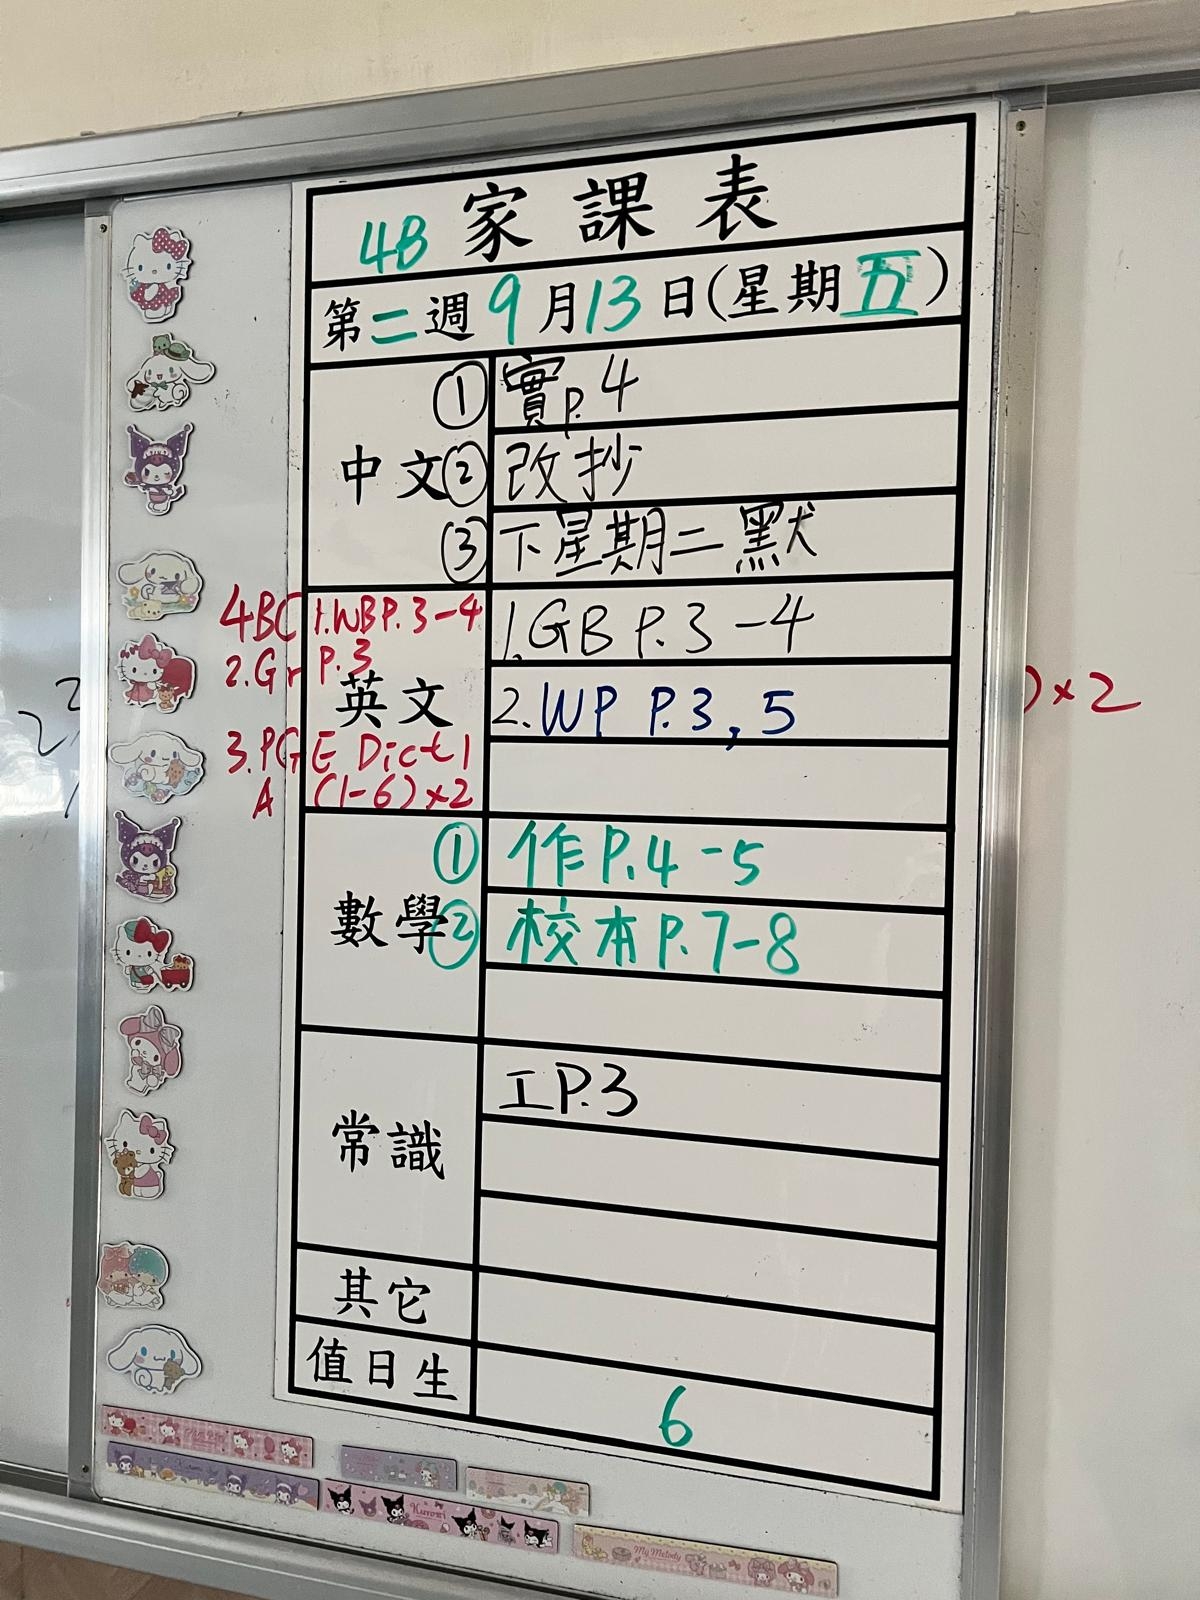 4B 家課表
第二週 9月13日(星期五)
中文
① 實p.4
② 改抄
③ 下星期二默
4BC 1.WB P.3-4
2.Gr P.3
英文
3.PGE Dict 1
A (1-6)×2
1.GB P.3-4
2.WP P.3,5
)×2
數學
① 作P.4-5
② 校本P.7-8
常識
工P.3
其它
值日生
6
Kuromi
My Melody